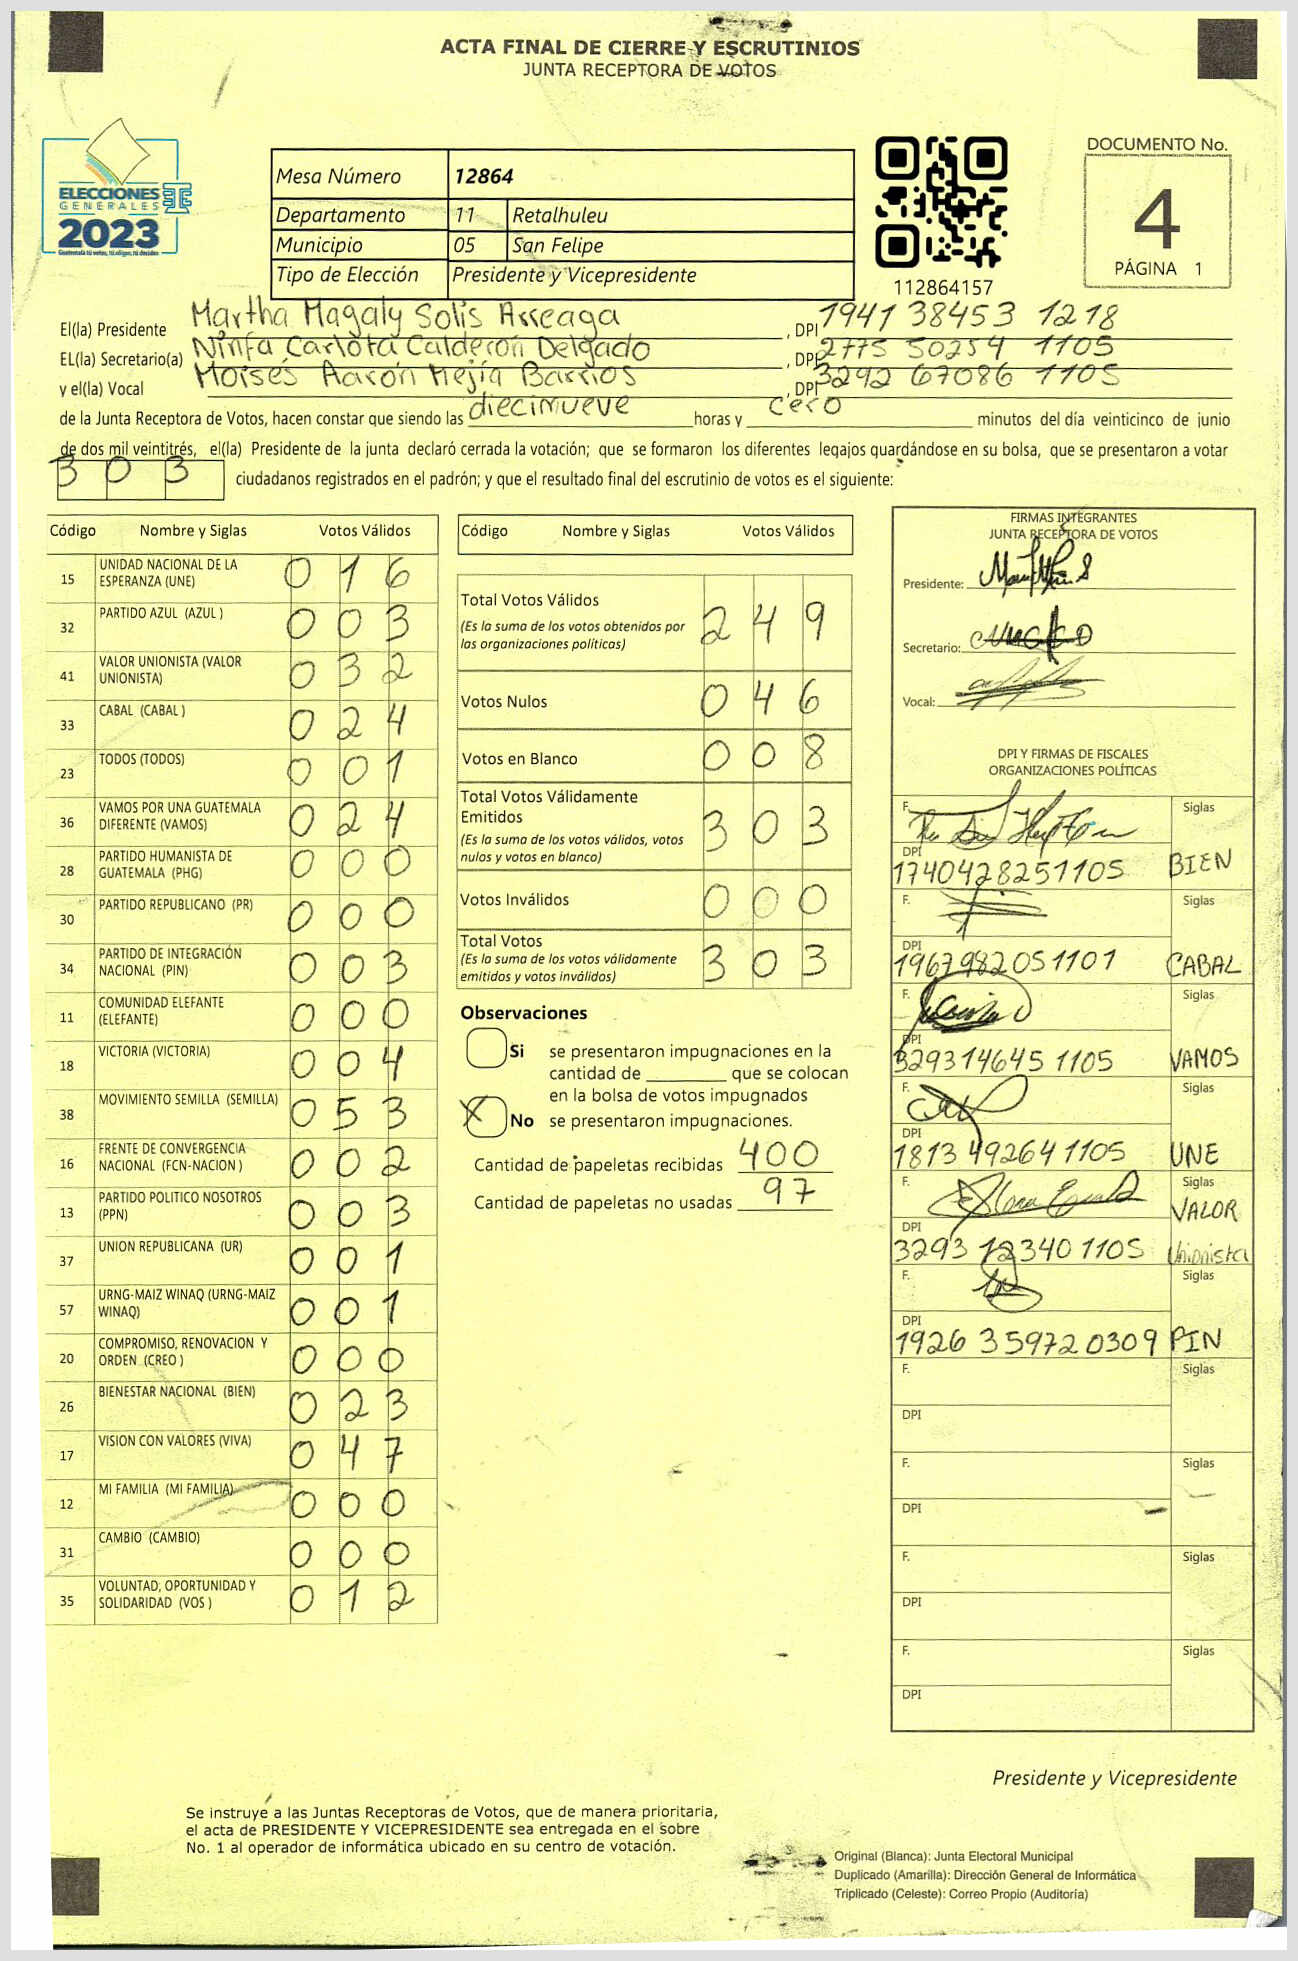 ACTA FINAL DE CIERRE Y ESCRUTINIOS
JUNTA RECEPTORA DE VOTOS
ELECCIONES
GENERALES
2023
Guatemala tú votas, tú eliges, tú decides
Mesa Número 12864
Departamento 11 Retalhuleu
Municipio 05 San Felipe
Tipo de Elección Presidente y Vicepresidente
112864157
DOCUMENTO No.
4
PÁGINA 1
El(la) Presidente Martha Magaly Solís Arreaga, DPI 1941 38453 1218
EL(la) Secretario(a) Ninfa Carlota Calderón Delgado, DPI 2775 50254 1105
y el(la) Vocal Moisés Aarón Mejía Barrios, DPI 3292 67086 1105
de la Junta Receptora de Votos, hacen constar que siendo las diecinueve horas y cero minutos del día veinticinco de junio
de dos mil veintitrés, el(la) Presidente de la junta declaró cerrada la votación; que se formaron los diferentes legajos guardándose en su bolsa, que se presentaron a votar
303 ciudadanos registrados en el padrón; y que el resultado final del escrutinio de votos es el siguiente:
Código Nombre y Siglas Votos Válidos
15 UNIDAD NACIONAL DE LA ESPERANZA (UNE) 016
32 PARTIDO AZUL (AZUL ) 003
41 VALOR UNIONISTA (VALOR UNIONISTA) 032
33 CABAL (CABAL ) 024
23 TODOS (TODOS) 001
36 VAMOS POR UNA GUATEMALA DIFERENTE (VAMOS) 024
28 PARTIDO HUMANISTA DE GUATEMALA (PHG) 000
30 PARTIDO REPUBLICANO (PR) 000
34 PARTIDO DE INTEGRACIÓN NACIONAL (PIN) 003
11 COMUNIDAD ELEFANTE (ELEFANTE) 000
18 VICTORIA (VICTORIA) 004
38 MOVIMIENTO SEMILLA (SEMILLA) 053
16 FRENTE DE CONVERGENCIA NACIONAL (FCN-NACION ) 002
13 PARTIDO POLITICO NOSOTROS (PPN) 003
37 UNION REPUBLICANA (UR) 001
57 URNG-MAIZ WINAQ (URNG-MAIZ WINAQ) 001
20 COMPROMISO, RENOVACION Y ORDEN (CREO ) 000
26 BIENESTAR NACIONAL (BIEN) 023
17 VISION CON VALORES (VIVA) 047
12 MI FAMILIA (MI FAMILIA) 000
31 CAMBIO (CAMBIO) 000
35 VOLUNTAD, OPORTUNIDAD Y SOLIDARIDAD (VOS ) 012
Código Nombre y Siglas Votos Válidos
Total Votos Válidos 249
(Es la suma de los votos obtenidos por
las organizaciones políticas)
Votos Nulos 046
Votos en Blanco 008
Total Votos Válidamente
Emitidos 303
(Es la suma de los votos válidos, votos
nulos y votos en blanco)
Votos Inválidos 000
Total Votos 303
(Es la suma de los votos válidamente
emitidos y votos inválidos)
Observaciones
Si se presentaron impugnaciones en la
cantidad de ________ que se colocan
en la bolsa de votos impugnados
X No se presentaron impugnaciones.
Cantidad de papeletas recibidas 400
Cantidad de papeletas no usadas 97
FIRMAS INTEGRANTES
JUNTA RECEPTORA DE VOTOS
Presidente:
Secretario:
Vocal:
DPI Y FIRMAS DE FISCALES
ORGANIZACIONES POLÍTICAS
F. Siglas
DPI 1740428251105 BIEN
F. Siglas
DPI 1967982051101 CABAL
F. Siglas
DPI 329314645 1105 VAMOS
F. Siglas
DPI 1813 49264 1105 UNE
F. Siglas
DPI 3293 12340 1105 VALOR Unionista
F. Siglas
DPI 1926 35972 0309 PIN
F. Siglas
DPI
F. Siglas
DPI
F. Siglas
DPI
F. Siglas
DPI
Presidente y Vicepresidente
Se instruye a las Juntas Receptoras de Votos, que de manera prioritaria,
el acta de PRESIDENTE Y VICEPRESIDENTE sea entregada en el sobre
No. 1 al operador de informática ubicado en su centro de votación.
Original (Blanca): Junta Electoral Municipal
Duplicado (Amarilla): Dirección General de Informática
Triplicado (Celeste): Correo Propio (Auditoría)